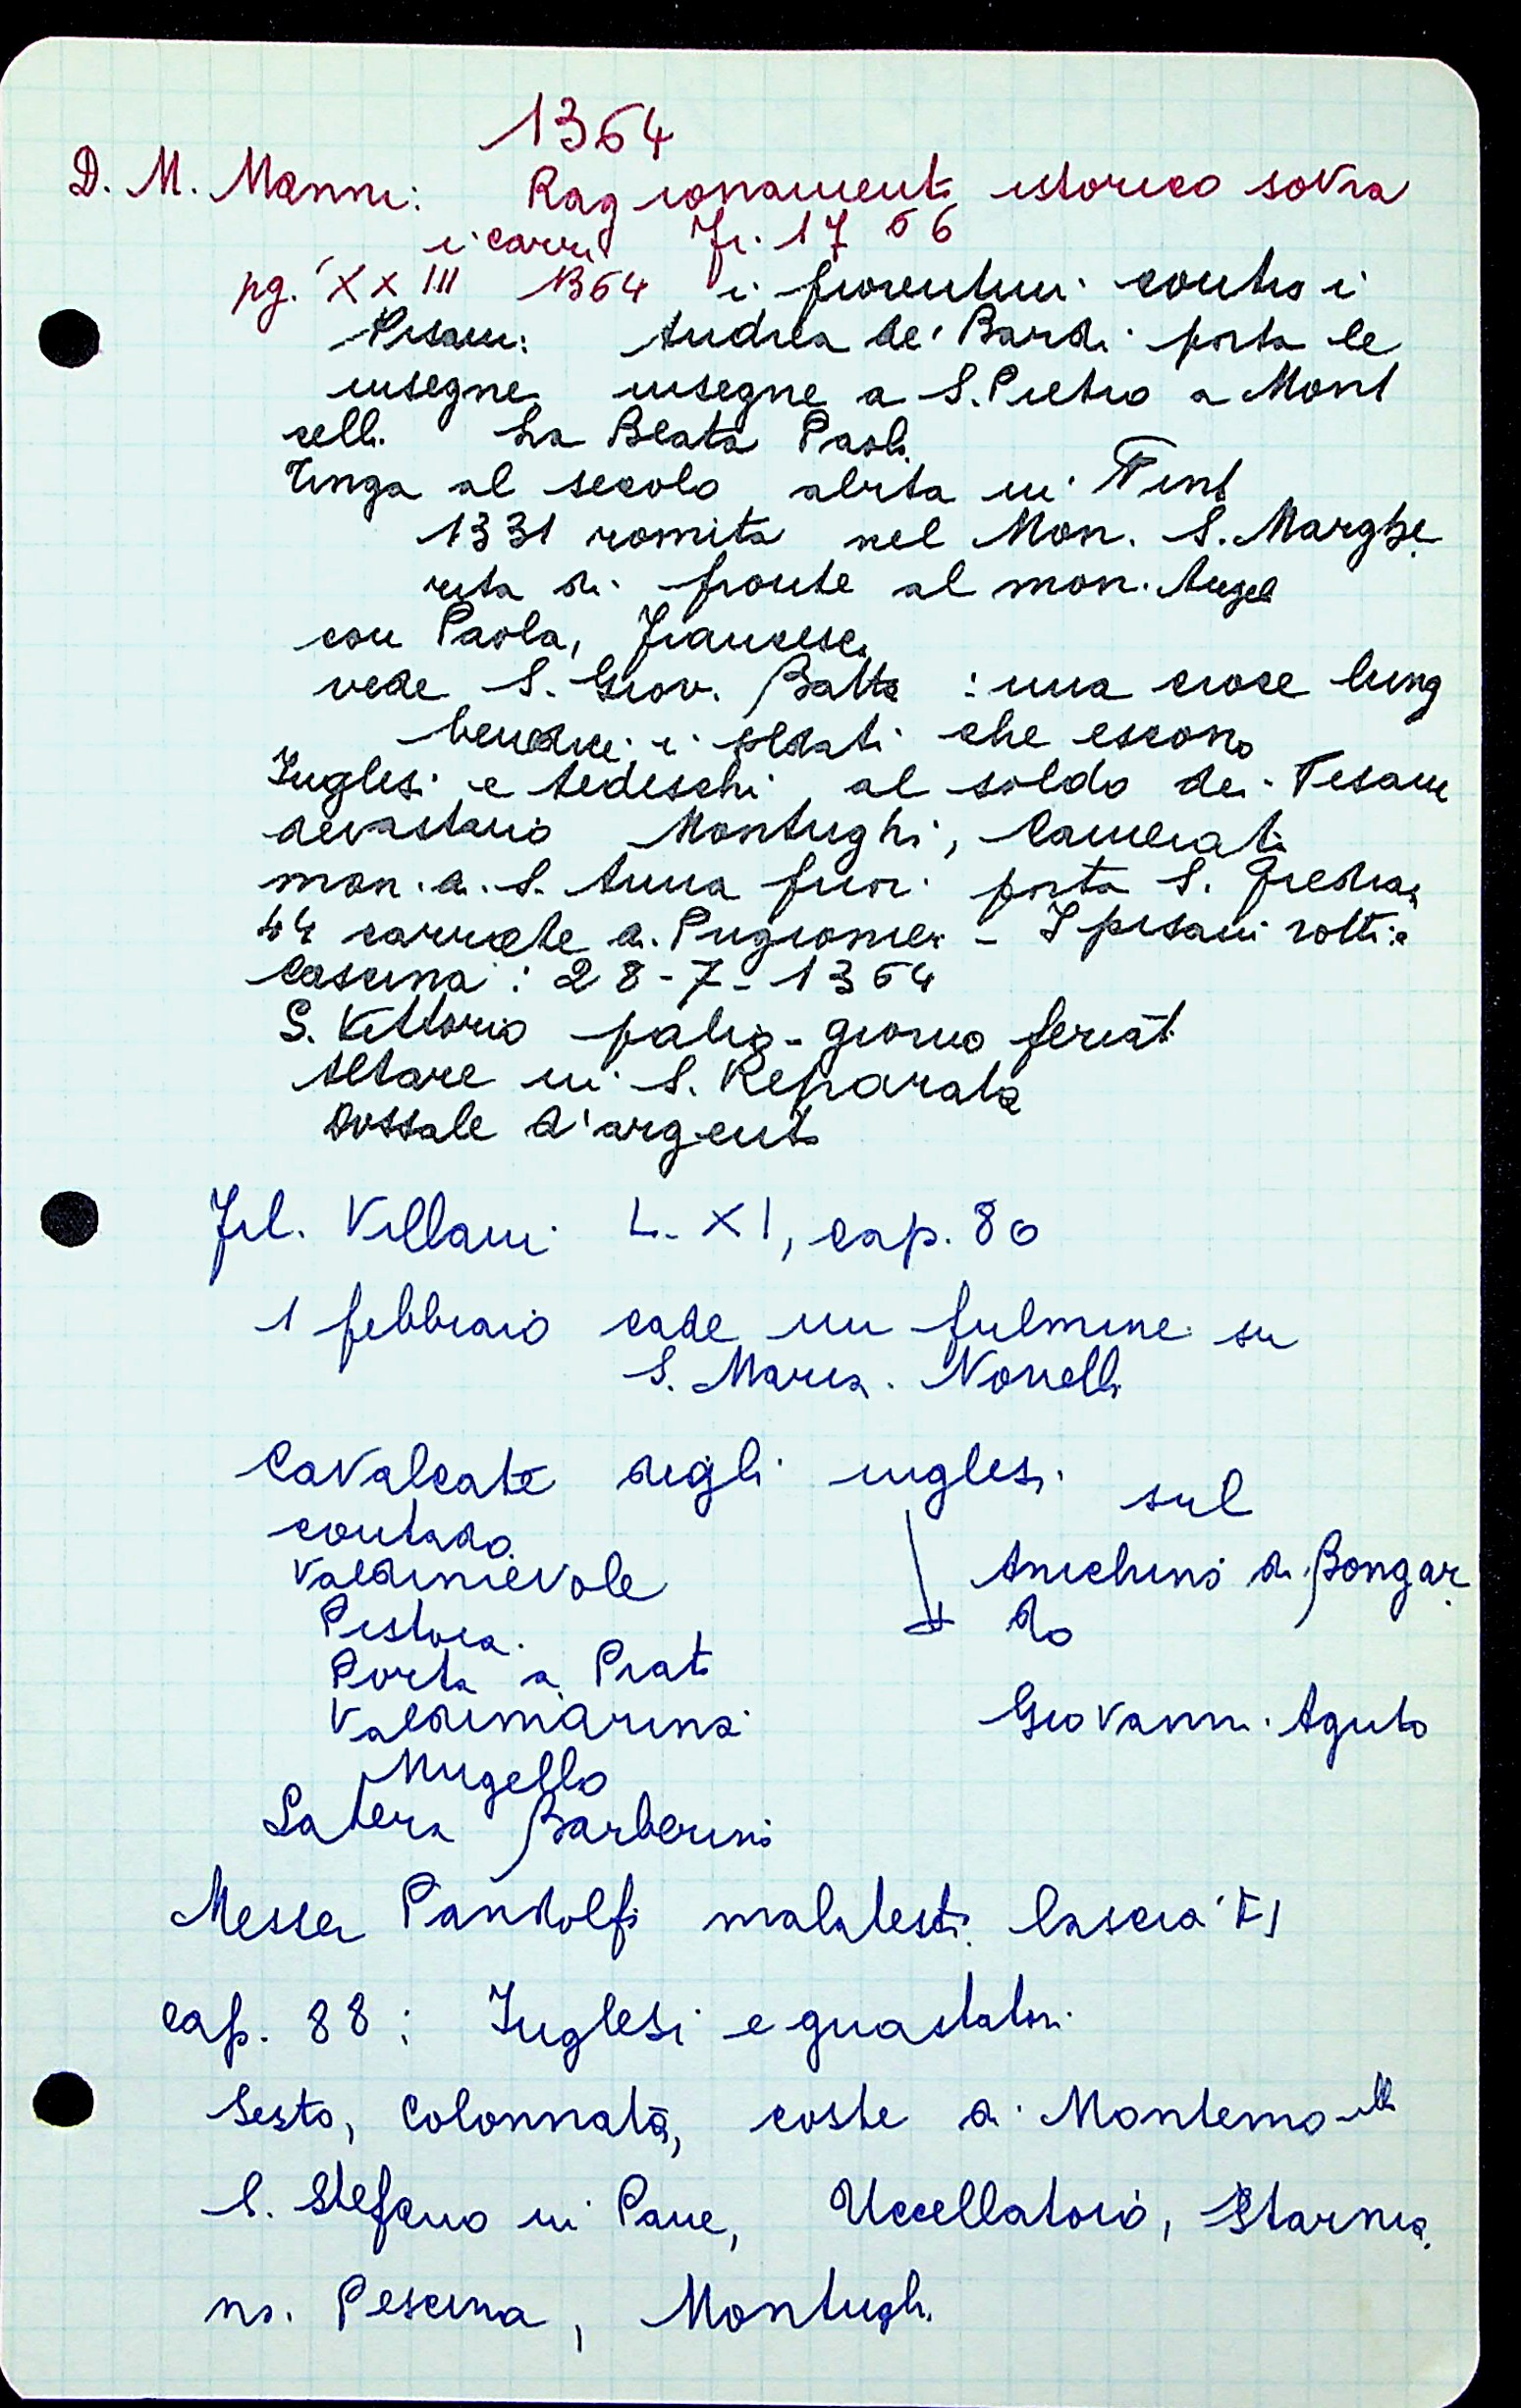 1364
D. M. Manni: Ragionamento istorico sovra
i carri Fi. 1766
pg. XXIII 1364 i fiorentini contro i
Pisani: Andrea de' Bardi porta le
insegne insegne a S. Pietro a Mont
celli. La Beata Paola
al secolo abita in
1331 romita nel Mon. S. Marghe
rita di fronte al mon. Angel
con Paola, Francesca
vede S. Giov. Batta : una croce lung
benedice i soldati che escono
Inglesi e tedeschi al soldo dei Pesani
devastano Montughi, Camerata
mon. di S. Anna fuori porta S. Fredian
44 carrette di Prigionieri - I pisani rotti a
Cascina : 28-7-1364
S. Vittorio palio - giorno feriato
Altare in S. Reparata
Dossale d'argento
Fil. Villani L. XI, cap. 80
1 febbraio cade un fulmine su
S. Maria Novella
Cavalcate degli inglesi sul
contado
Valdinievole Anichino di Bongar
Pistoia do
Porta a Prato
Valdimarina Giovanni Aguto
Mugello
Latera Barberino
Messer Pandolfo malatesta lascia FI
cap. 88 : Inglesi e guastatori
Sesto, Colonnata, coste di Montemorello
S. Stefano in Pane, Uccellatoio, Starnia
no. Pescina, Montughi